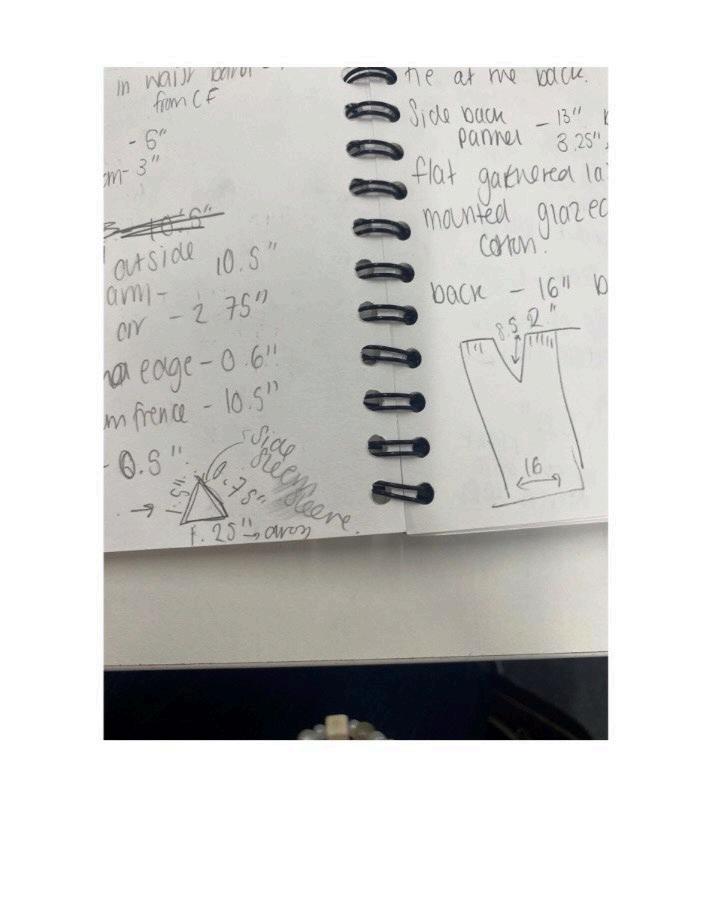 in waist band
from CF
- 6"
m- 3"
10.5"
outside 10.5"
arm-
- 2 75"
edge - 0.6"
m frence - 10.5"
- 0.5"
side
seem
sleeve.
1.5"
0.75"
1.25" →
tie at the back.
Side back - 13"
pannel 8.25"
flat gathered
mounted glazed
cotton.
back - 16" b
8.5 2"
16